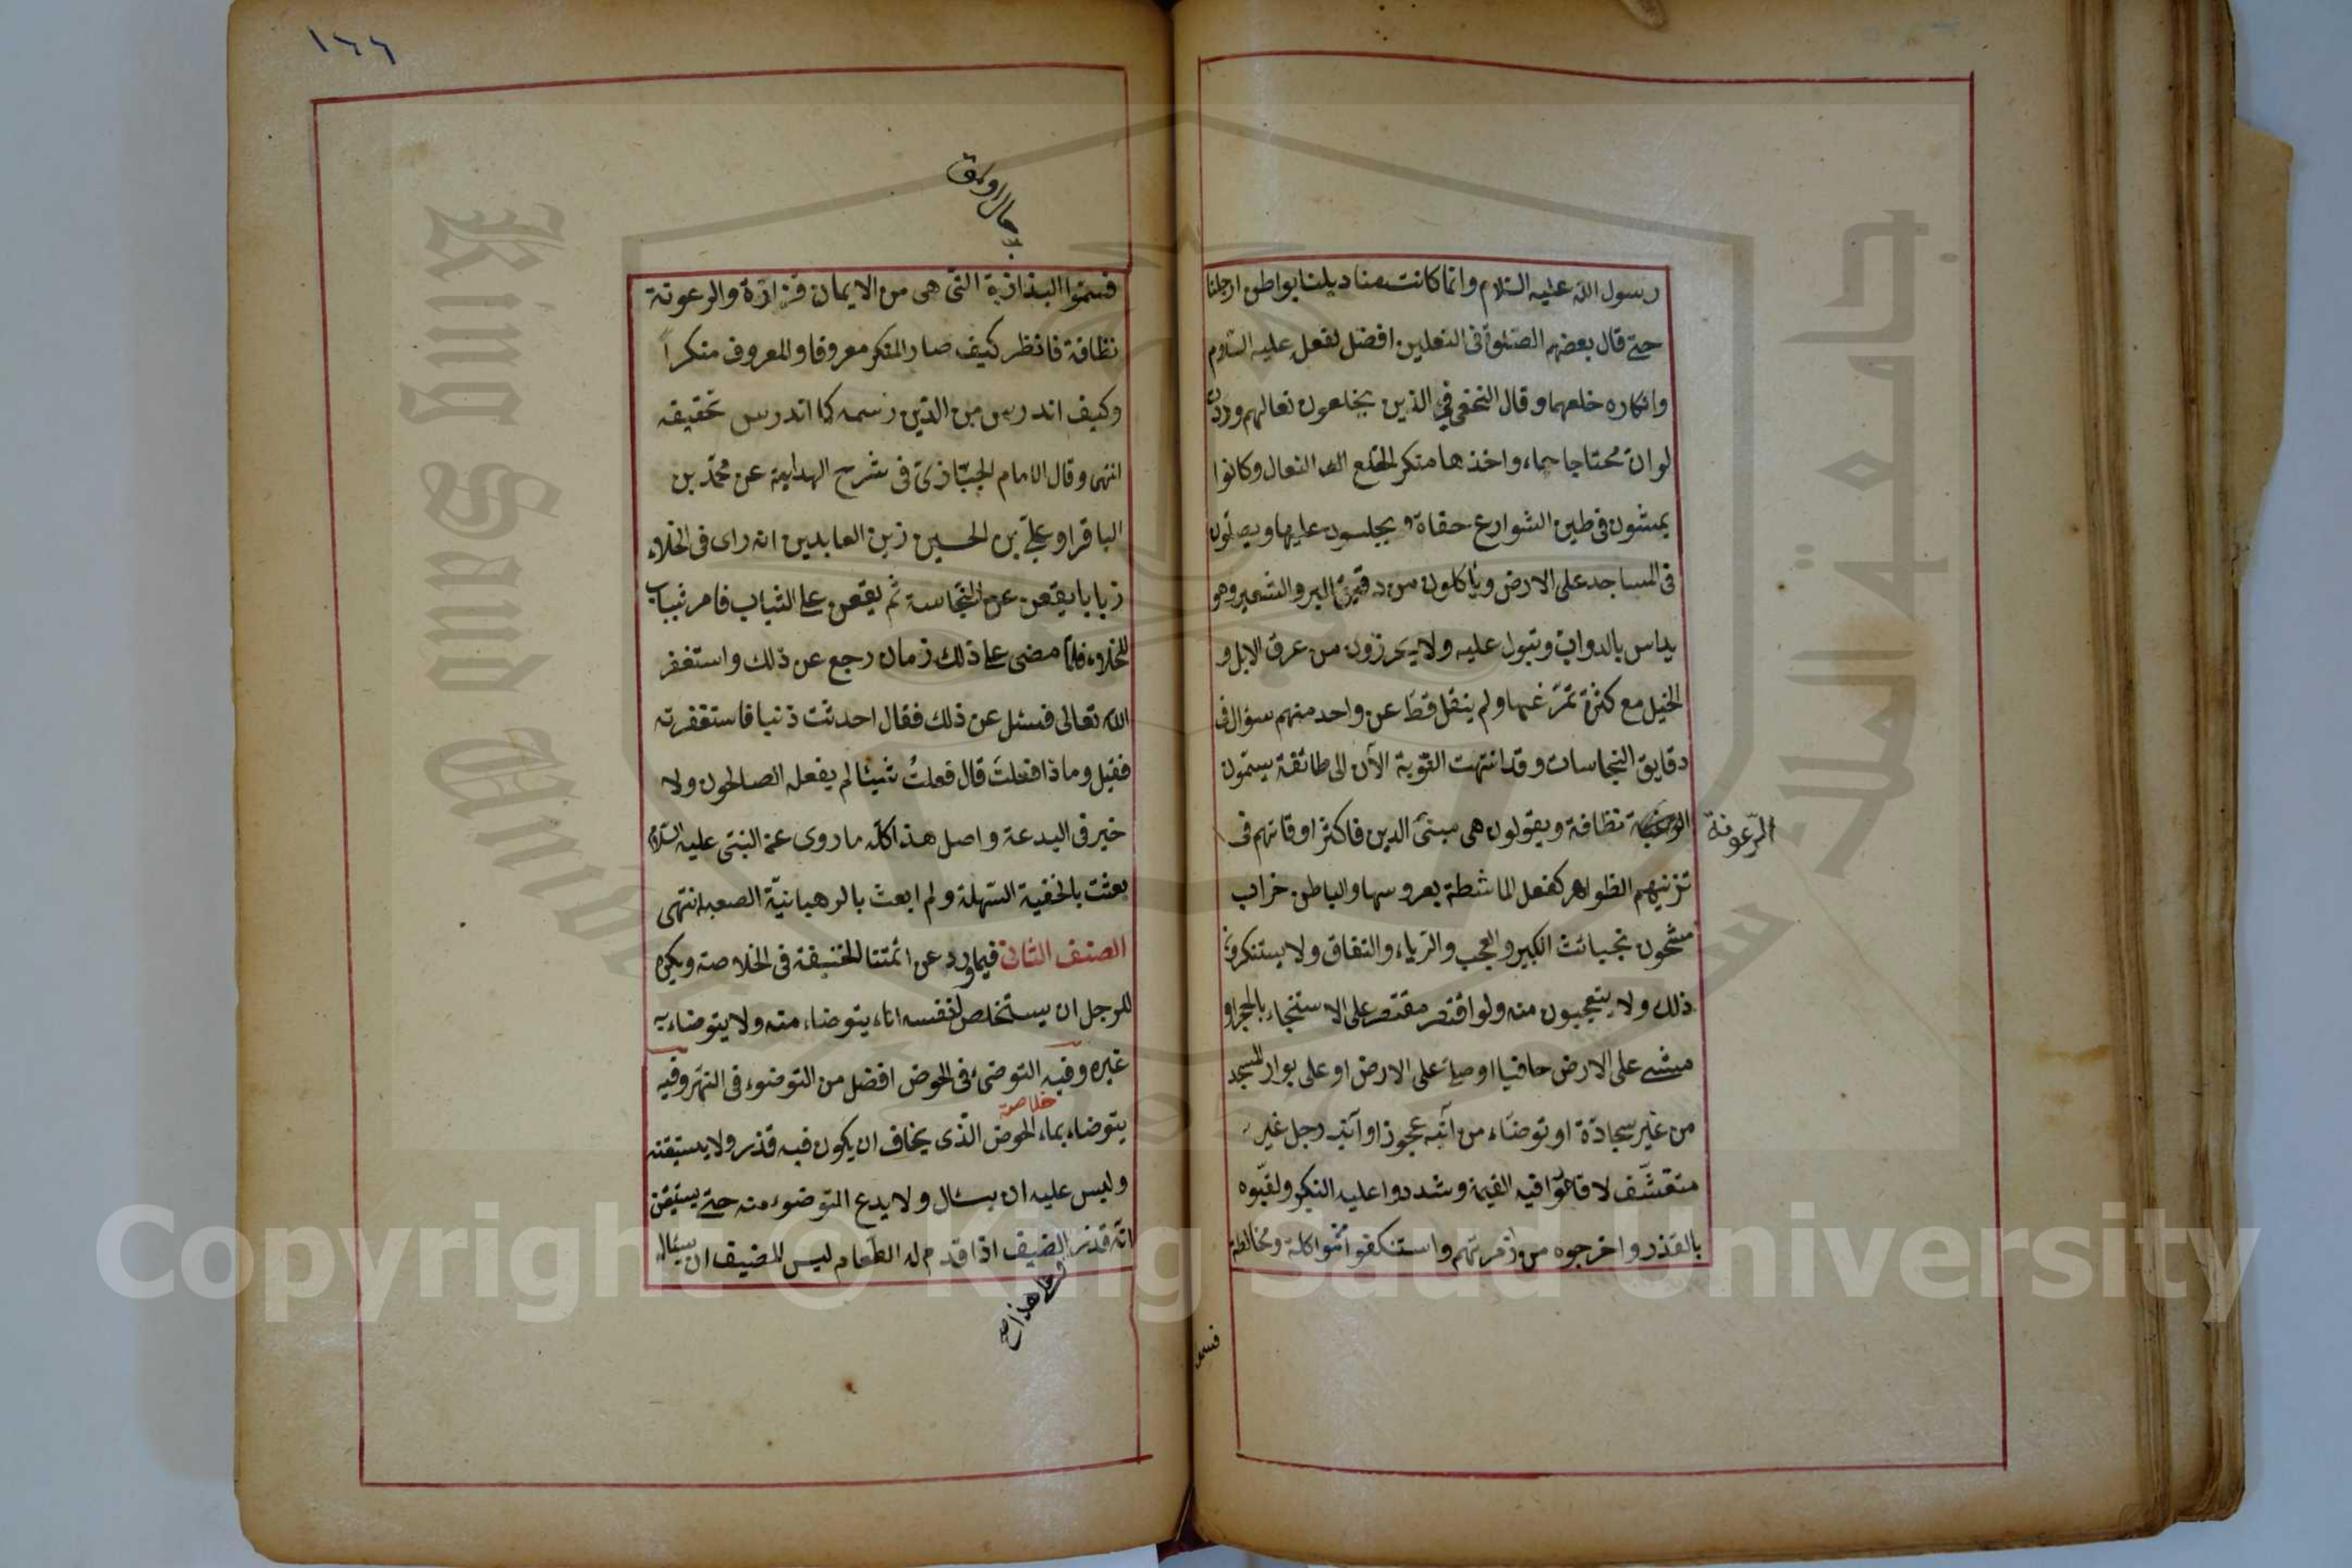 رسول الله عليه السلام وانما كانت مناديلنا بواطن ارجلنا
حتى قال بعضهم الصلوة فى النعلين افضل لفعل عليه السلام
وانكاره خلعهما وقال النخعى فى الذين يخلعون نعالهم وددت
لو ان محتاجا جاء واخذها منكر الخلع النعال وكانوا
يمشون فى طين الشوارع حفاة ويجلسون عليها ويصلون
فى المساجد على الارض ويأكلون من دقيق البر والشعير وهو
يداس بالدواب وتبول عليه ولا يحرزون من عرق الابل و
الخيل مع كثرة تمرغها ولم ينقل قط عن واحد منهم سؤال فى
دقايق النجاسات وقد انتهت النوبة الآن الى طائفة يسمون
نظافة ويقولون هى مبنى الدين فاكثر اوقاتهم فى
الرعونة
تزنيهم الظواهر كفعل الماشطة بعروسها والباطن خراب
مشحون بخبائث الكبر والعجب والرياء والنفاق ولا يستنكرون
ذلك ولا يتعجبون منه ولو اقتصر مقتصر على الاستنجاء بالحجر او
مشى على الارض حافيا او صلى على الارض او على بوار المسجد
من غير سجادة او توضاء من آنية عجوز او آنية رجل غير
متقشف لاقاموا فيه القيمة وشددوا عليه النكير ولقبوه
بالقذر واخرجوه من زمرتهم واستنكفوا عن مواكلة ومخالطة
فسموا
١٦٦
فسموا البذاذة التى هى من الايمان قزازة والرعونة
نظافة فانظر كيف صار المنكر معروفا والمعروف منكراً
وكيف اندرس من الدين رسمه كما اندرس تحقيقه
انتهى وقال الامام الخبازى فى شرح الهداية عن محمد بن
الباقر او على بن الحسين زين العابدين انه راى فى الخلاء
ذبابا يقعن عن النجاسة ثم يقعن على الثياب فامر بثياب
للخلاء فلما مضى على ذلك زمان رجع عن ذلك واستغفر
الله تعالى فسئل عن ذلك فقال احدثت ذنبا فاستغفرته
فقيل وماذا فعلتَ قال فعلتُ شيئا لم يفعله الصالحون ولا
خير فى البدعة واصل هذا كله ما روى عن النبى عليه السلام
بعثت بالحنفية السهلة ولم ابعث بالرهبانية الصعبة انتهى
الصنف الثانى فيما ورد عن ائمتنا الحنيفة فى الخلاصة ويكره
للرجل ان يستخلص لنفسه اناء يتوضاء منه ولا يتوضاء به
غيره وفيه التوضئ فى الحوض افضل من التوضوء فى النهر وفيه
خلاصه
يتوضاء بماء الحوض الذى يخاف ان يكون فيه قذر ولا يستيقنه
وليس عليه ان يسئال ولا يدع التوضوء منه حتى يستيقن
انه قذر الضيف اذا قدم له الطعام ليس للمضيف ان يسئال
وعلى هذا صح